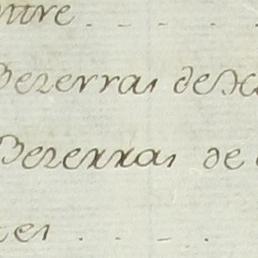 ntre
Bezerras de
Bezerras de
es